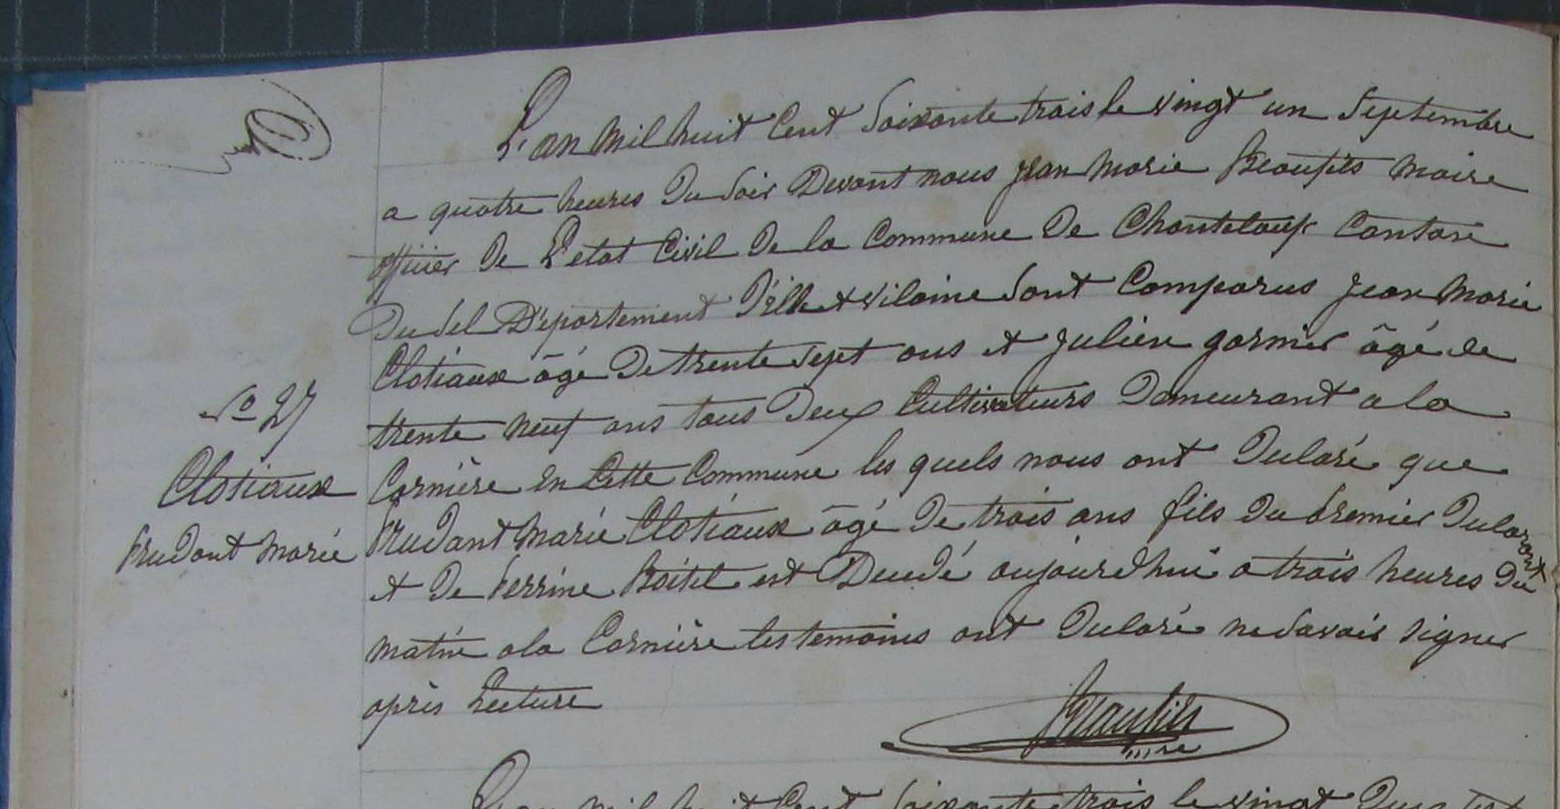 L'an mil huit Cent Soixante trois le vingt un Septembre
a quatre heures du Soir Devant nous jean Marie Beaufils maire
officier de L'etat Civil de la Commune de Chanteloup Canton
du Sel Département d'ille & vilaine Sont Comparus jean Marie
Clotiaux âgé De trente Sept ans et julien garnier âgé de
No 27
trente neuf ans tous Deux Cultivateurs Demeurant a la
Clotiaux
Cornière En Cette Commune les quels nous ont Déclaré que
Prudant Marie
Prudant Marie Clotiaux âgé De trois ans fils du Premier Déclarant
et De Perrine Boitel est Décédé aujourdhui a trois heures Du
matin a la Cornière les temoins ont Déclaré ne Savoir Signer
après Lecture
Beaufils
mre
L'an mil huit Cent Soixante trois le vingt